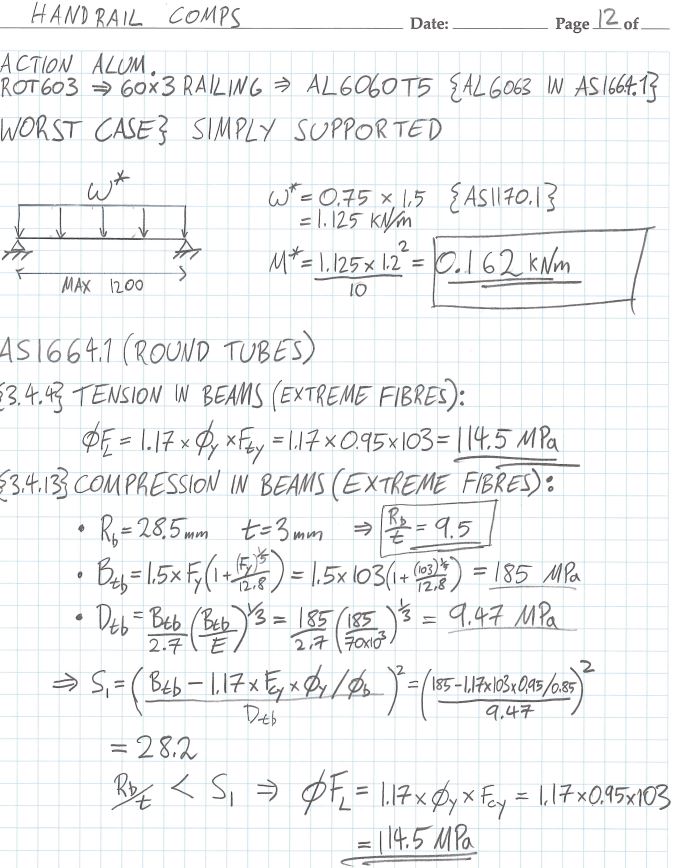 HANDRAIL COMPS Date: Page 12 of
ACTION ALUM.
ROT603 ⇒ 60x3 RAILING ⇒ AL6060T5 {AL6063 IN AS1664.1}
WORST CASE} SIMPLY SUPPORTED
W*
MAX 1200
ω* = 0.75 × 1.5 {AS1170.1}
= 1.125 kN/m
M* = 1.125 x 1.2² / 10 = 0.162 kNm
AS1664.1 (ROUND TUBES)
{3.4.4} TENSION IN BEAMS (EXTREME FIBRES):
ϕF_L = 1.17 × ϕ_y × F_ty = 1.17 × 0.95 × 103 = 114.5 MPa
{3.4.13} COMPRESSION IN BEAMS (EXTREME FIBRES):
• R_b = 28.5mm t = 3mm ⇒ R_b/t = 9.5
• B_tb = 1.5 × F_y (1 + (F_y)^1/5 / 12.8) = 1.5 × 103 (1 + (103)^1/5 / 12.8) = 185 MPa
• D_tb = B_tb/2.7 (B_tb/E)^1/3 = 185/2.7 (185/70x10³)^1/3 = 9.47 MPa
⇒ S_1 = (B_tb - 1.17 × F_cy × ϕ_y/ϕ_b / D_tb)² = (185 - 1.17x103x0.95/0.85 / 9.47)²
= 28.2
R_b/t < S_1 ⇒ ϕF_L = 1.17 × ϕ_y × F_cy = 1.17 × 0.95 × 103
= 114.5 MPa